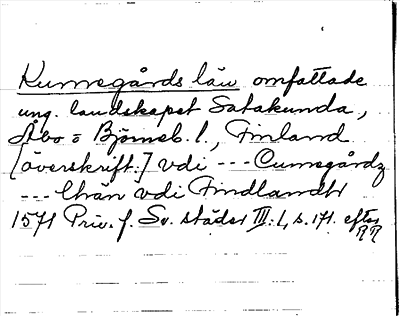 Kumogårds län omfattade
ung. landskapet Satakunda,
Åbo o Björneb. l., Finland.
[överskrift:] vdi --- Cumogårdz
--- lhän vdi Findlandh
1571 Priv. f. Sv. städer III: 1, s. 171. efter
RR